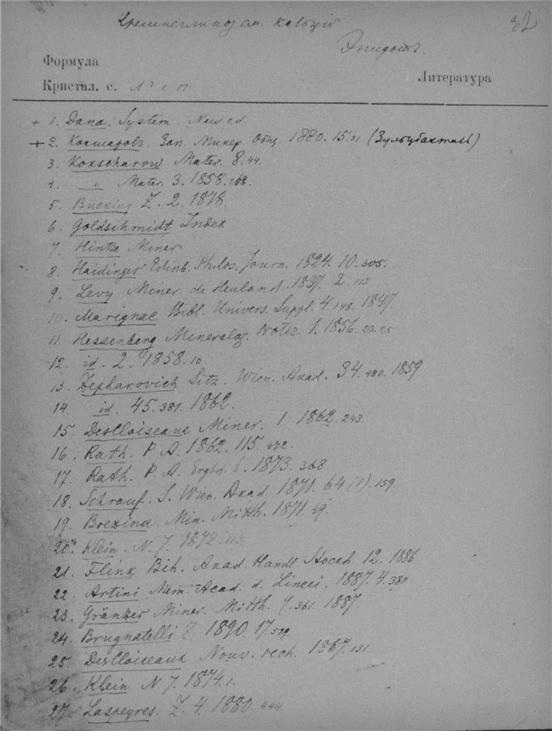 Кремнеглиноз. ам. кальція
32
Эпидотъ.
Формула
Кристал. с.
Литература
+ 1. Dana. System. New ed.
+ 2. Кокшаровъ. Зап. Минер. Общ. 1880. 15.31 (Зульцбахталь)
3. Kokscharow Mater. 8.44.
4. " Mater. 3. 1858. 268.
5. Bücking Z. 2. 1878.
6. Goldschmidt Index
7. Hintze Miner
8. Haidinger Edinb. Philos. Journ. 1824. 10. 305.
9. Levy Miner. de Heuland. 1837. 2. 113
10. Marignac Bibl. Univers. Suppl. 4 148. 1847.
11. Hessenberg Mineralog. Notiz 1. 1856.
12. id. 2. 1858. 10.
13. Zepharovich Sitz. Wien. Akad. 34. 480. 1859
14. id. 45. 381. 1862.
15. DesCloiseaux Miner. 1 1862. 243.
16. Rath. P. A. 1862. 115. 472.
17. Rath. P. A. Ergbd. 6. 1873. 368
18. Schrauf. S. Wien. Akad. 1871. 64 (1). 159.
19. Brezina. Min. Mitth. 1871. 49.
20. Klein. N. J. 1872. 113.
21. Flink Bih. Akad. Handl. Stockh 12. 1886
22. Artini Mem. Acad. d. Lincei. 1887. 4. 380
23. Gränzer Miner. Mitth. 9. 361. 1887.
24. Brugnatelli Z. 1890. 17. 529.
25. DesCloiseaux Nouv. rech. 1867. 131
26. Klein N. J. 1874. 1.
27. Laspeyres. Z. 4. 1880. 444